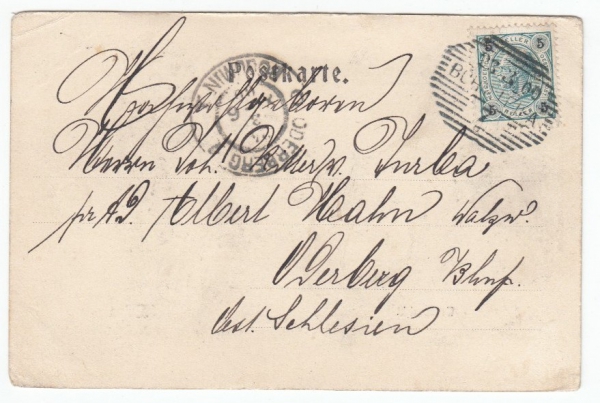 Postkarte.
Hochwohlgeboren
Herrn Joh. Ritter v. Turba
pr Ad. Albert Hahn Walzw.
Oderberg Bhnf.
Oest. Schlesien
5 HELLER 5
5 5
ODERBERG